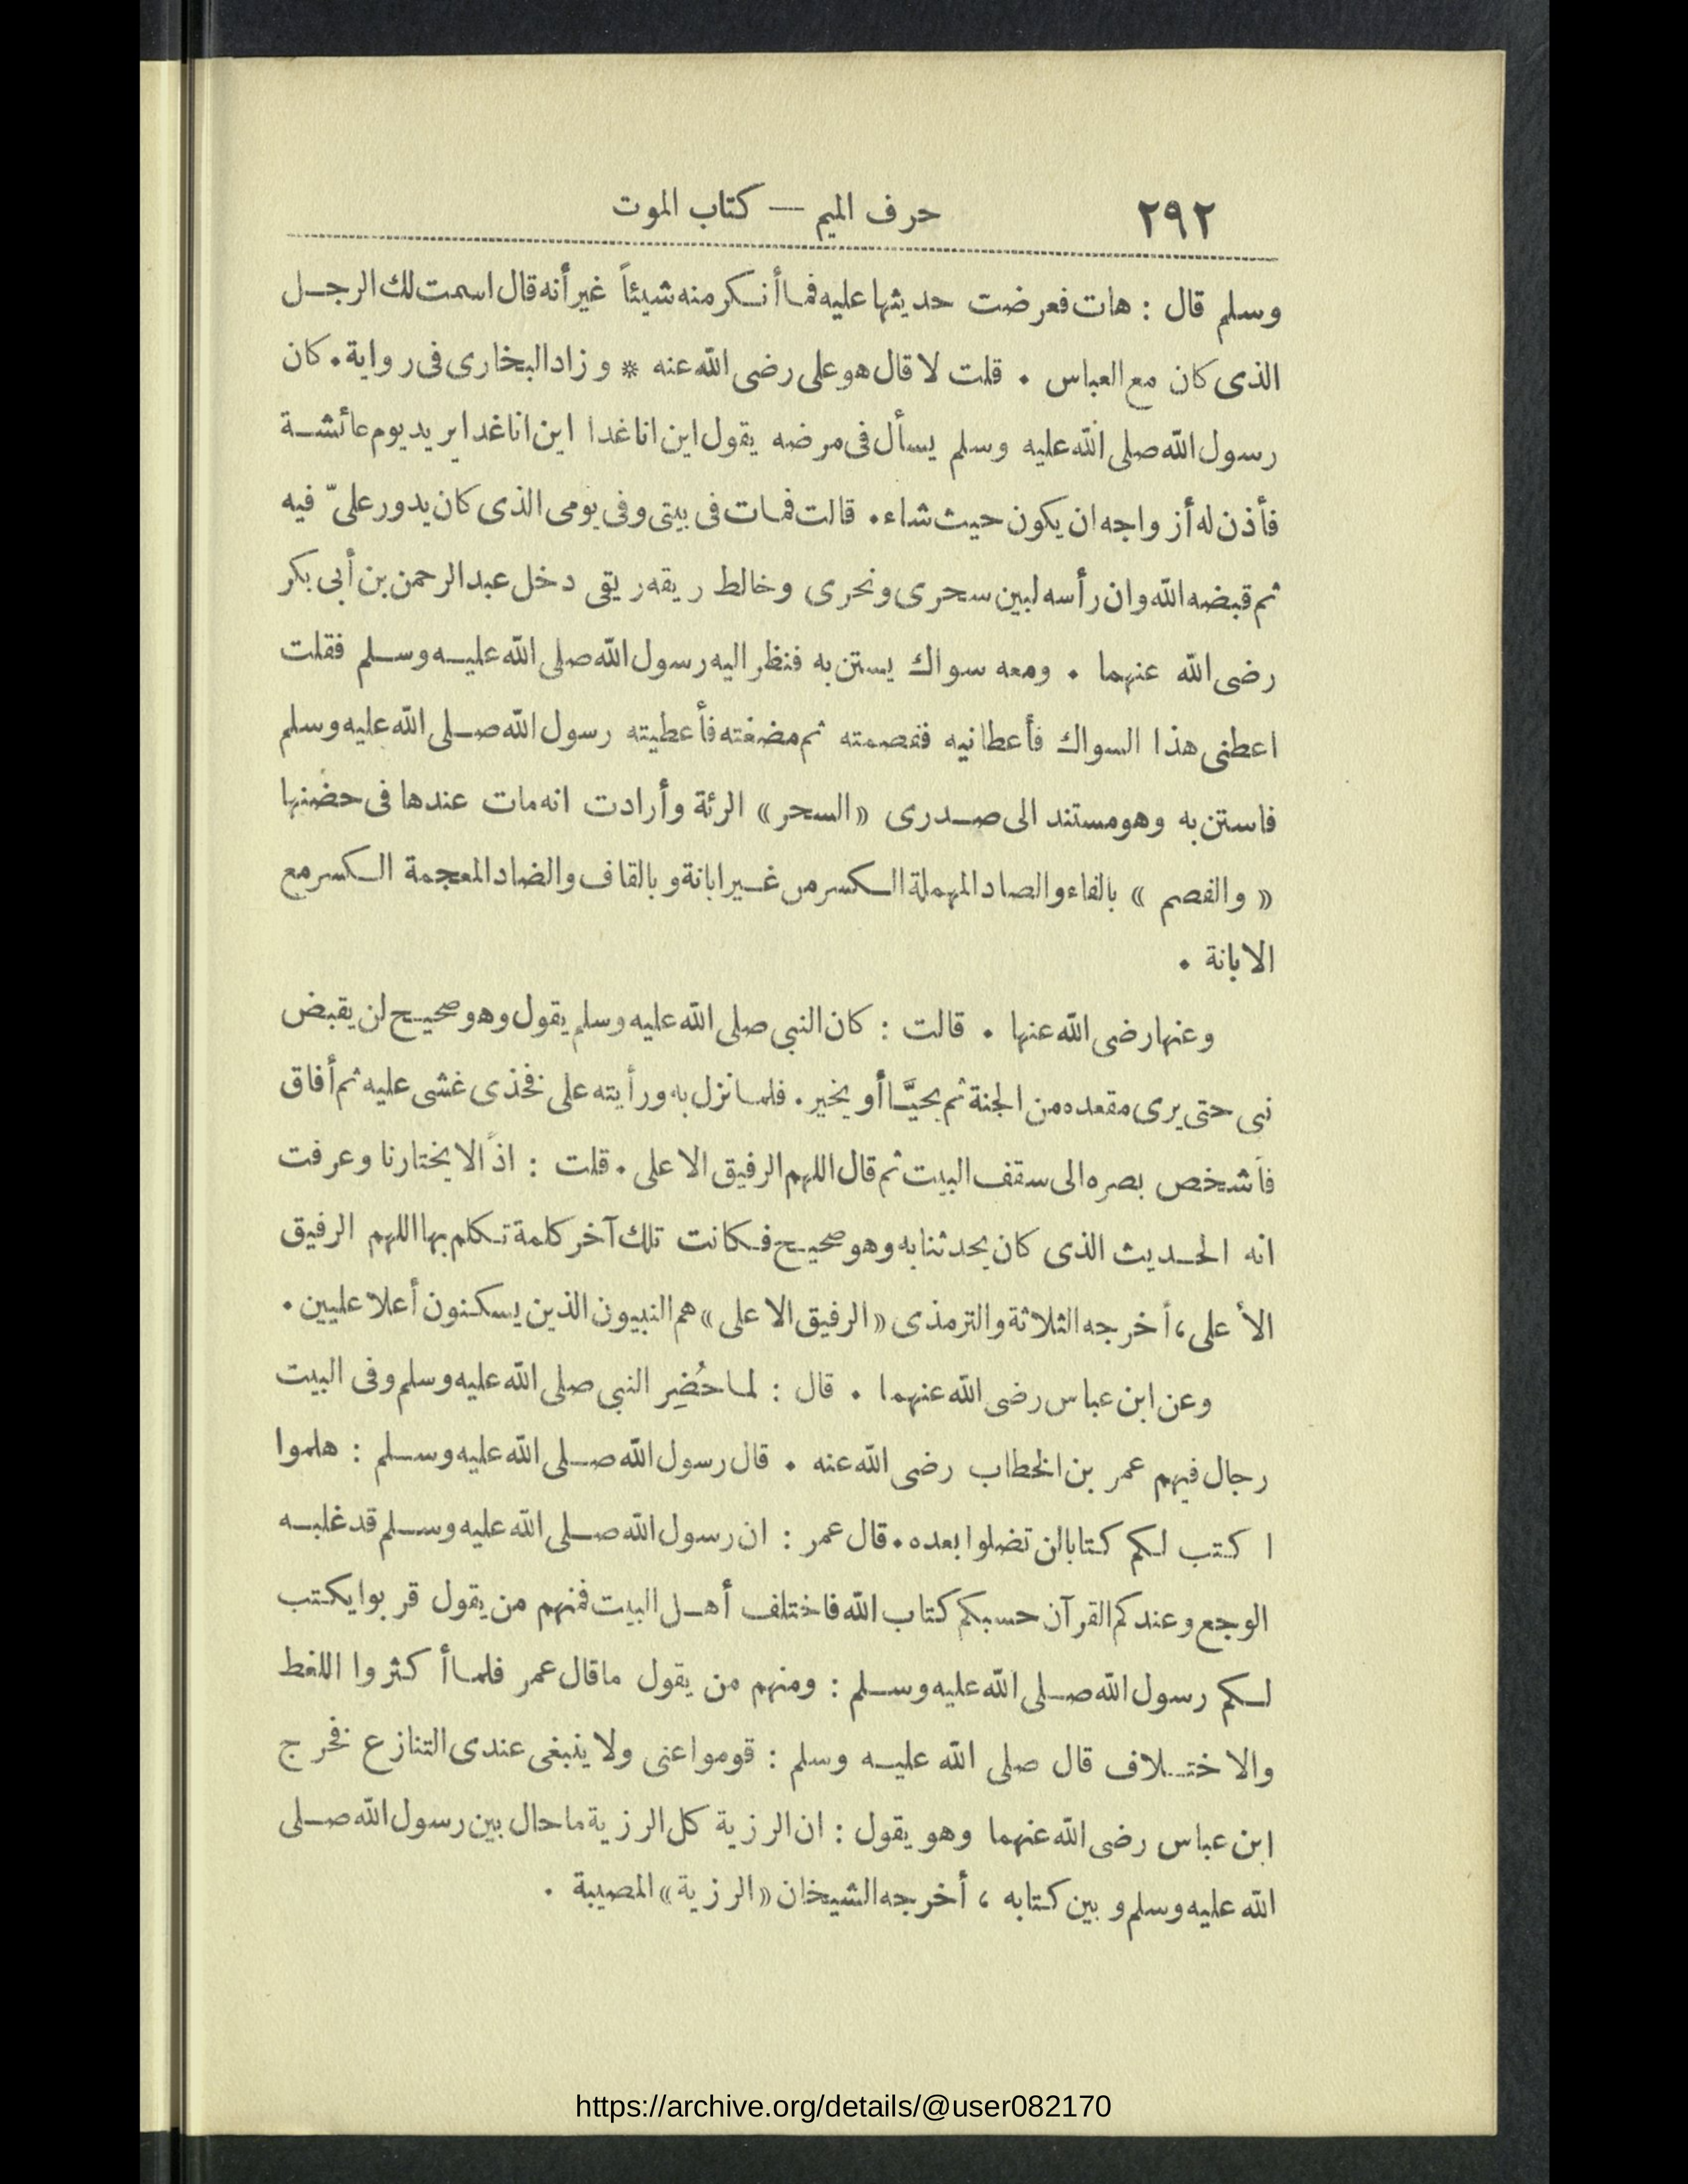 ٢٩٢ حرف الميم — كتاب الموت
وسلم قال : هات فعرضت حديثها عليه فما أنكر منه شيئاً غير أنه قال اسمت لك الرجل
الذى كان مع العباس . قلت لا قال هو على رضى الله عنه * وزاد البخارى فى رواية . كان
رسول الله صلى الله عليه وسلم يسأل فى مرضه يقول اين انا غدا اين انا غدا يريد يوم عائشة
فأذن له أزواجه ان يكون حيث شاء . قالت فمات فى بيتى وفى يومى الذى كان يدور علىّ فيه
ثم قبضه الله وان رأسه لبين سحرى ونحرى وخالط ريقه ريقى دخل عبد الرحمن بن أبى بكر
رضى الله عنهما . ومعه سواك يستن به فنظر اليه رسول الله صلى الله عليه وسلم فقلت
اعطنى هذا السواك فأعطانيه ففصمته ثم مضغته فأعطيته رسول الله صلى الله عليه وسلم
فاستن به وهو مستند الى صدرى «السحر» الرئة وأرادت انه مات عندها فى حضنها
« والفصم » بالفاء والصاد المهملة الكسر من غير ابانة وبالقاف والضاد المعجمة الكسر مع
الابانة .
وعنها رضى الله عنها . قالت : كان النبى صلى الله عليه وسلم يقول وهو صحيح لن يقبض
نبى حتى يرى مقعده من الجنة ثم يحيَّا أو يخير . فلما نزل به ورأيته على فخذى غشى عليه ثم أفاق
فأشخص بصره الى سقف البيت ثم قال اللهم الرفيق الاعلى . قلت : اذاً لا يختارنا وعرفت
انه الحديث الذى كان يحدثنا به وهو صحيح فكانت تلك آخر كلمة تكلم بها اللهم الرفيق
الأعلى ، أخرجه الثلاثة والترمذى «الرفيق الاعلى» هم النبيون الذين يسكنون أعلا عليين .
وعن ابن عباس رضى الله عنهما . قال : لما حُضِر النبى صلى الله عليه وسلم وفى البيت
رجال فيهم عمر بن الخطاب رضى الله عنه . قال رسول الله صلى الله عليه وسلم : هلموا
اكتب لكم كتابا لن تضلوا بعده . قال عمر : ان رسول الله صلى الله عليه وسلم قد غلبه
الوجع وعندكم القرآن حسبكم كتاب الله فاختلف أهل البيت فمنهم من يقول قربوا يكتب
لكم رسول الله صلى الله عليه وسلم : ومنهم من يقول ما قال عمر فلما أكثروا اللغط
والاختلاف قال صلى الله عليه وسلم : قوموا عنى ولا ينبغى عندى التنازع فخرج
ابن عباس رضى الله عنهما وهو يقول : ان الرزية كل الرزية ما حال بين رسول الله صلى
الله عليه وسلم وبين كتابه ، أخرجه الشيخان «الرزية» المصيبة .
https://archive.org/details/@user082170